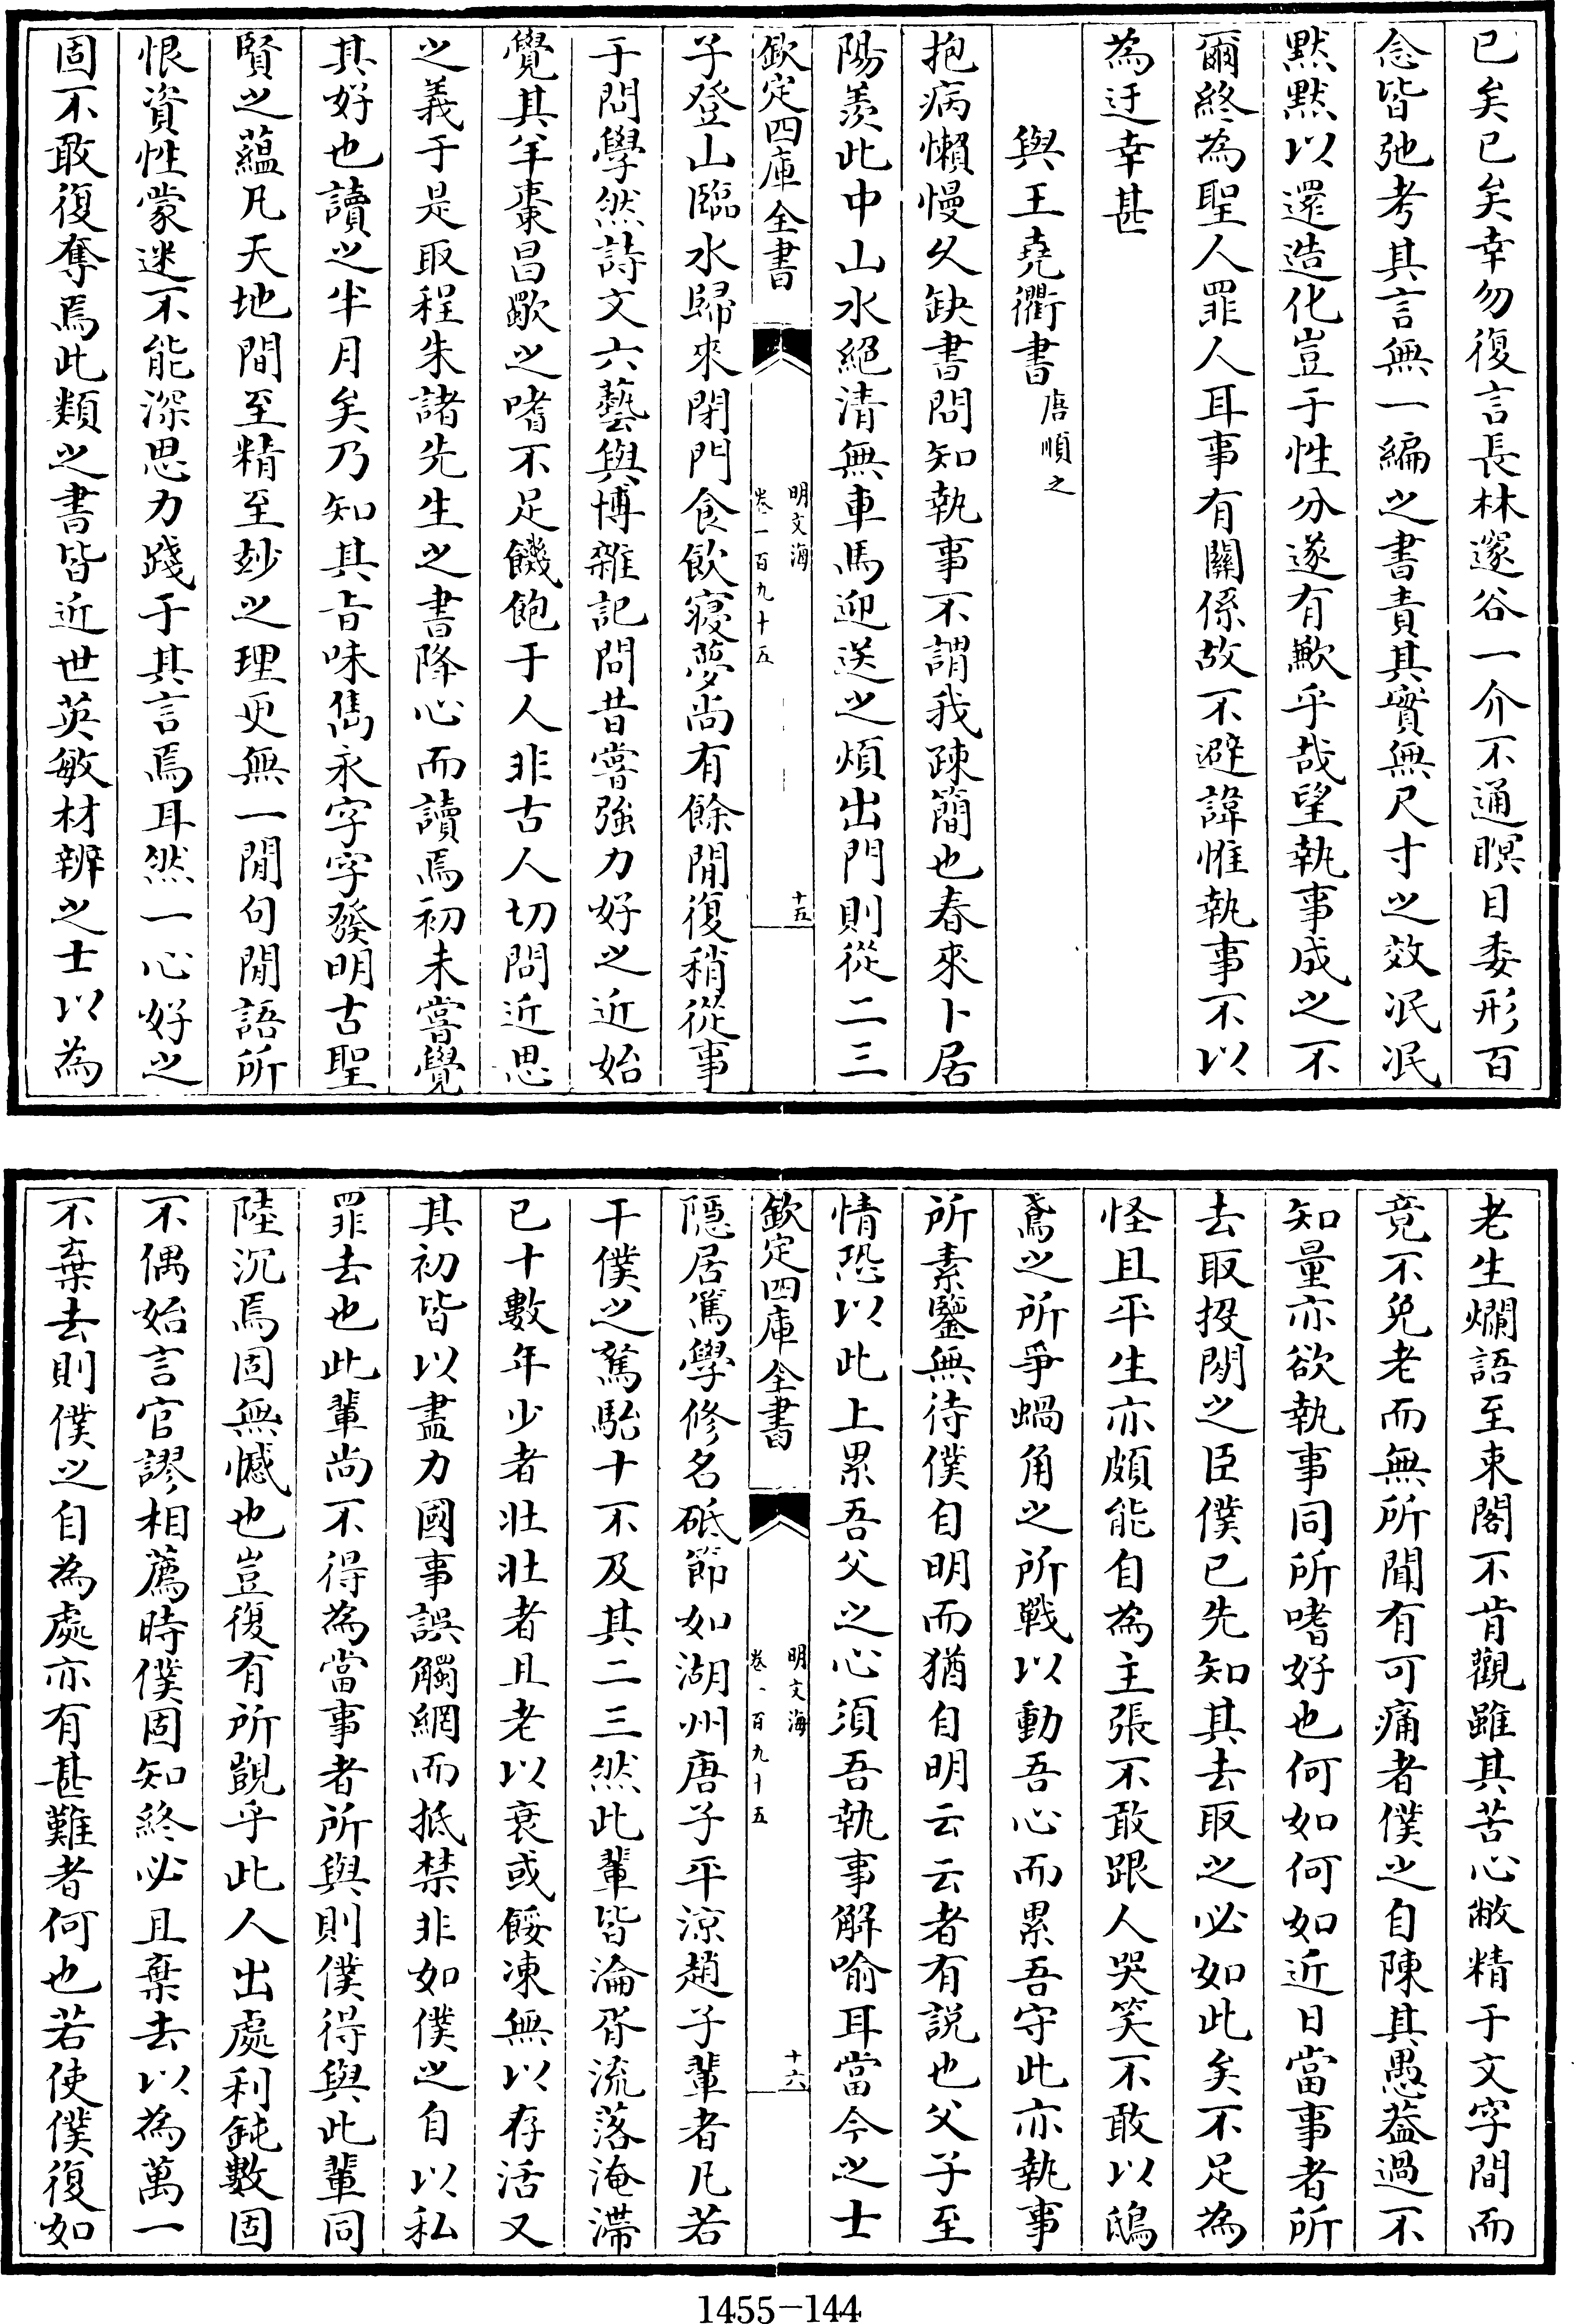 已矣已矣幸勿復言長林邃谷一介不通瞑目委形百
念皆弛考其言無一編之書責其實無尺寸之效泯泯
黙黙以還造化豈于性分遂有歉乎哉望執事成之不
爾終為聖人罪人耳事有關係故不避諱惟執事不以
為迂幸甚
與王堯衢書唐順之
抱病懶慢久缺書問知執事不謂我疎簡也春來卜居
陽羨此中山水絕清無車馬迎送之煩出門則從二三
欽定四庫全書
明文海
卷一百九十五
十五
子登山臨水歸來閉門食飲寢夢尚有餘閒復稍從事
于問學然詩文六藝與博雜記問昔嘗強力好之近始
覺其羊棗昌歜之嗜不足饑飽于人非古人切問近思
之義于是取程朱諸先生之書降心而讀焉初未嘗覺
其好也讀之半月矣乃知其旨味雋永字字發明古聖
賢之蘊凡天地間至精至妙之理更無一閒句閒語所
恨資性蒙迷不能深思力踐于其言焉耳然一心好之
固不敢復奪焉此類之書皆近世英敏材辨之士以為
老生爛語至束閣不肯觀雖其苦心敝精于文字間而
竟不免老而無所聞有可痛者僕之自陳其愚葢過不
知量亦欲執事同所嗜好也何如何如近日當事者所
去取投閒之臣僕已先知其去取之必如此矣不足為
怪且平生亦頗能自為主張不敢跟人哭笑不敢以鴟
鳶之所爭蝸角之所戰以動吾心而累吾守此亦執事
所素鑒無待僕自明而猶自明云云者有說也父子至
情恐以此上累吾父之心須吾執事解喻耳當今之士
欽定四庫全書
明文海
卷一百九十五
十六
隱居篤學修名砥節如湖州唐子平涼趙子輩者凡若
干僕之駑駘十不及其二三然此輩皆淪胥流落淹滯
已十數年少者壯壯者且老以衰或餒凍無以存活又
其初皆以盡力國事誤觸網而抵禁非如僕之自以私
罪去也此輩尚不得為當事者所與則僕得與此輩同
陸沉焉固無憾也豈復有所覬乎此人出處利鈍數固
不偶始言官謬相薦時僕固知終必且棄去以為萬一
不棄去則僕之自為處亦有甚難者何也若使僕復如
1455-144